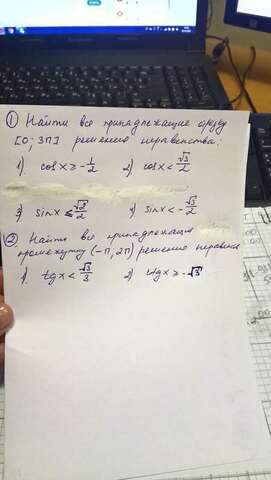 ① Найти все принадлежащие отрезку
[0; 3π] решения неравенства:
1) cos x ≥ -1/2 2) cos x < √3/2
3) sin x ≤ √2/2 4) sin x < -√3/2
② Найти все принадлежащие
промежутку (-π, 2π) решения неравен
1) tg x < √3/3 2) ctg x ≥ -√3